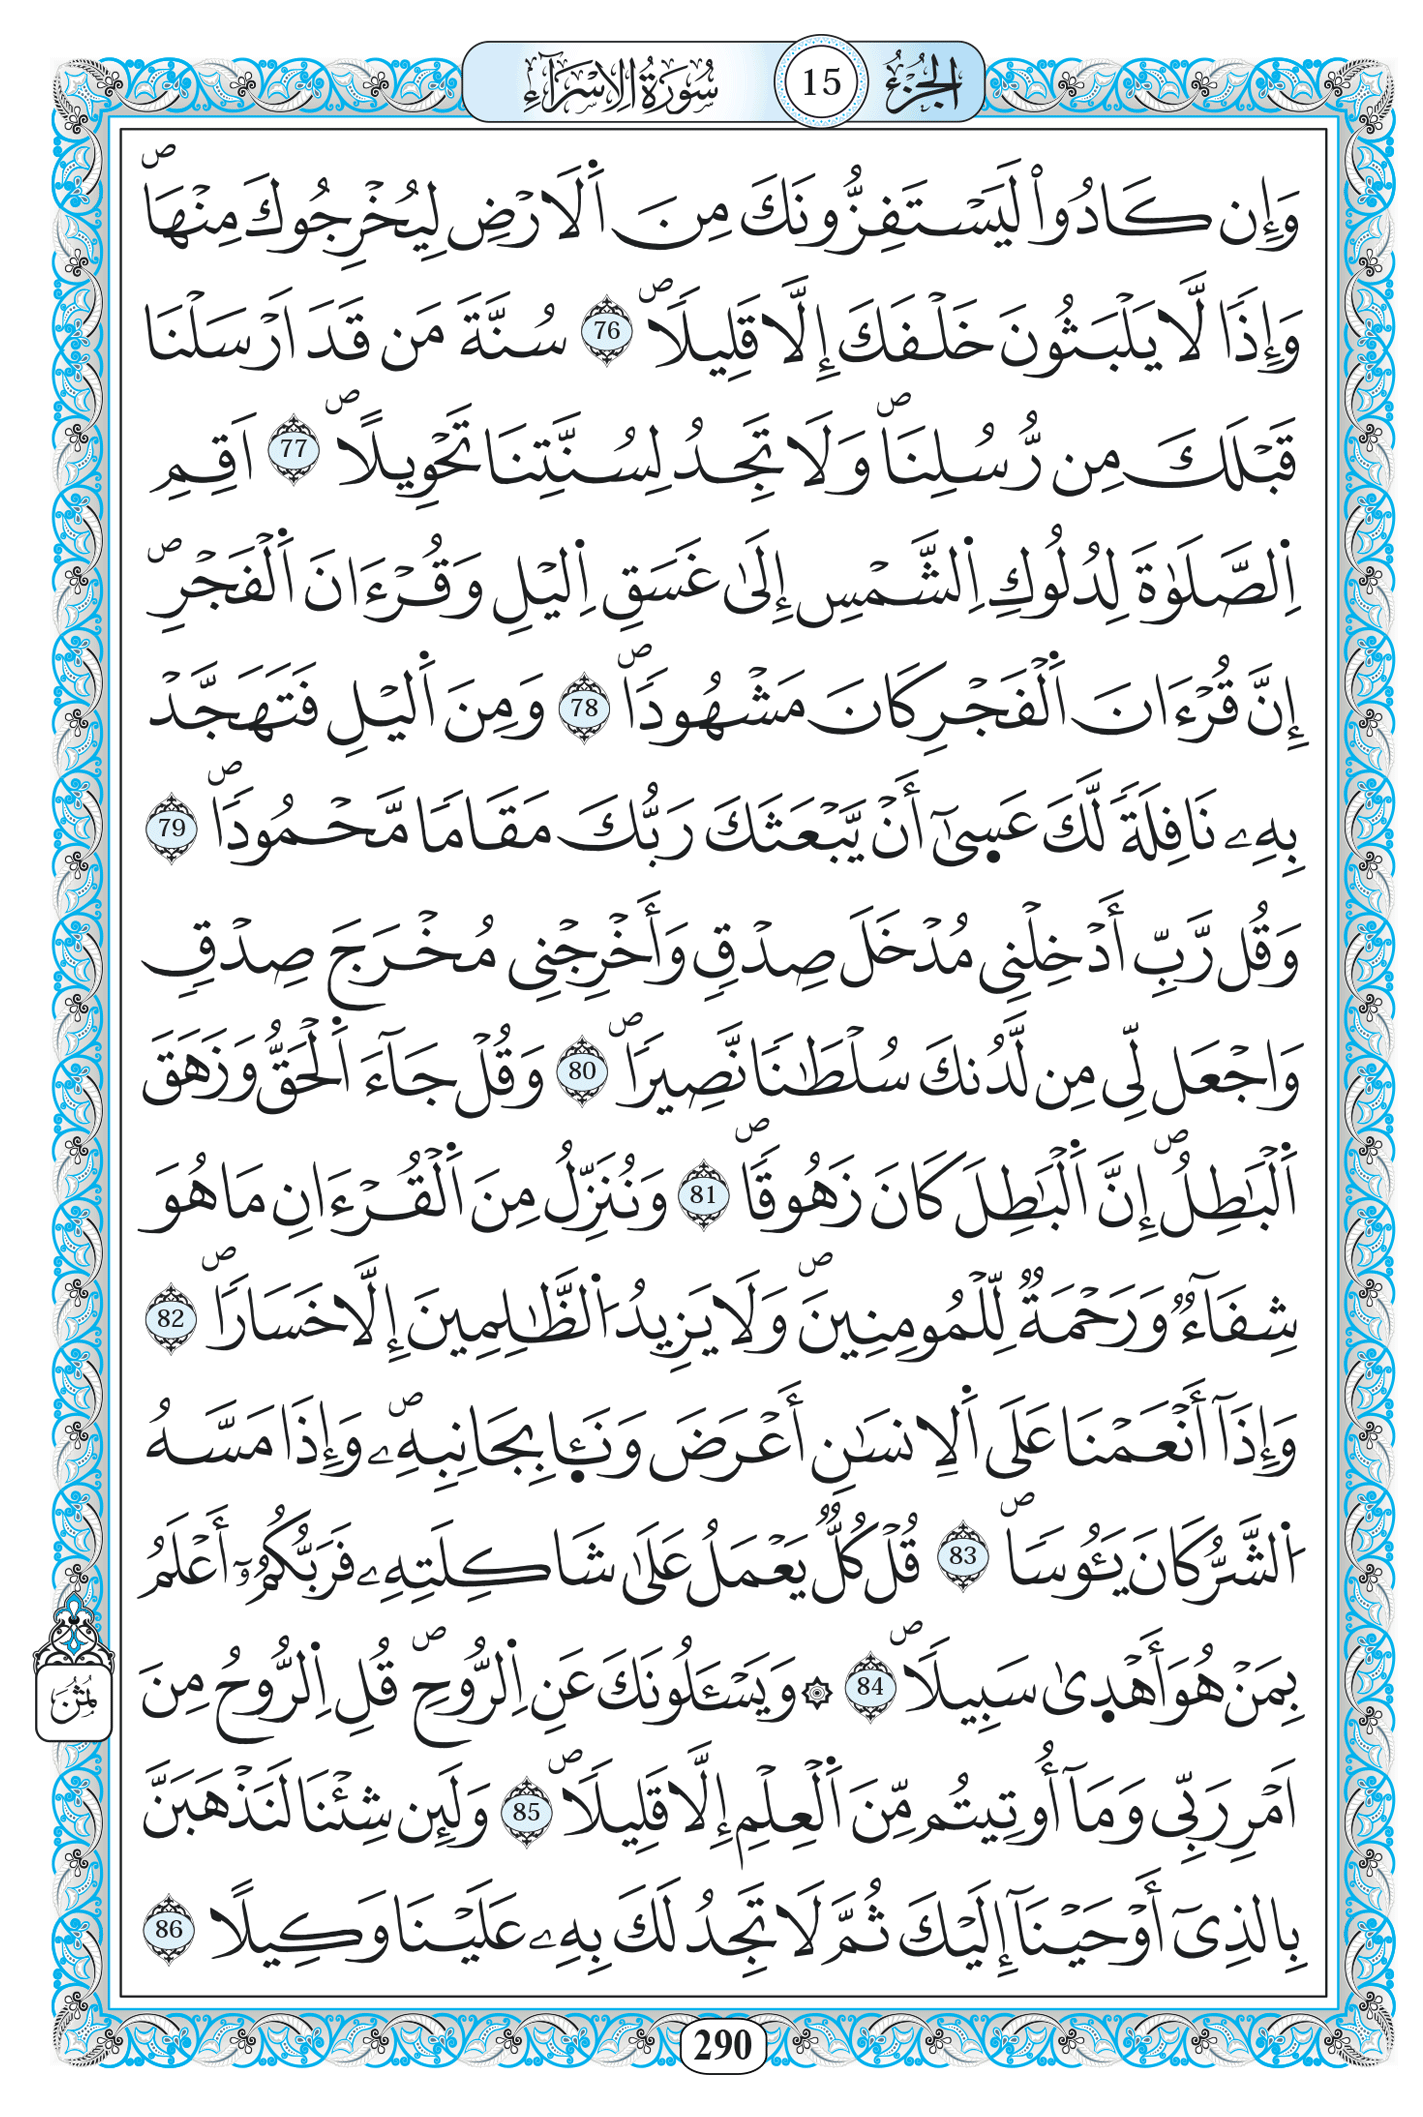 الجزء 15 سورة الإسراء
وَإِن كَادُواْ لَيَسْتَفِزُّونَكَ مِنَ اَ۬لَارْضِ لِيُخْرِجُوكَ مِنْهَاۖ
وَإِذاٗ لَّا يَلْبَثُونَ خَلْفَكَ إِلَّا قَلِيلاٗۖ 76 سُنَّةَ مَن قَدَ اَرْسَلْنَا
قَبْلَكَ مِن رُّسُلِنَاۖ وَلَا تَجِدُ لِسُنَّتِنَا تَحْوِيلاًۖ 77 اَقِمِ
اِ۬لصَّلَوٰةَ لِدُلُوكِ اِ۬لشَّمْسِ إِلَىٰ غَسَقِ اِ۬ليْلِ وَقُرْءَانَ اَ۬لْفَجْرِۖ
إِنَّ قُرْءَانَ اَ۬لْفَجْرِ كَانَ مَشْهُوداٗۖ 78 وَمِنَ اَ۬ليْلِ فَتَهَجَّدْ
بِهِۦ نَافِلَةٗ لَّكَ عَس۪ىٰٓ أَنْ يَّبْعَثَكَ رَبُّكَ مَقَاماٗ مَّحْمُوداٗۖ 79
وَقُل رَّبِّ أَدْخِلْنِي مُدْخَلَ صِدْقٖ وَأَخْرِجْنِي مُخْرَجَ صِدْقٖ
وَاجْعَل لِّي مِن لَّدُنكَ سُلْطَٰناٗ نَّصِيراٗۖ 80 وَقُلْ جَآءَ اَ۬لْحَقُّ وَزَهَقَ
اَ۬لْبَٰطِلُۖ إِنَّ اَ۬لْبَٰطِلَ كَانَ زَهُوقاٗۖ 81 وَنُنَزِّلُ مِنَ اَ۬لْقُرْءَانِ مَا هُوَ
شِفَآءٞ وَرَحْمَةٞ لِّلْمُومِنِينَۖ وَلَا يَزِيدُ اُ۬لظَّٰلِمِينَ إِلَّا خَسَاراٗۖ 82
وَإِذَآ أَنْعَمْنَا عَلَى اَ۬لِانسَٰنِ أَعْرَضَ وَنَـَٔا بِجَانِبِهِۦۖ وَإِذَا مَسَّهُ
اُ۬لشَّرُّ كَانَ يَـُٔوساٗۖ 83 قُلْ كُلّٞ يَعْمَلُ عَلَىٰ شَاكِلَتِهِۦ فَرَبُّكُمُۥٓ أَعْلَمُ
بِمَنْ هُوَ أَهْد۪ىٰ سَبِيلاٗۖ 84 ۞ وَيَسْـَٔلُونَكَ عَنِ اِ۬لرُّوحِۖ قُلِ اِ۬لرُّوحُ مِنَ
اَمْرِ رَبِّي وَمَآ أُوتِيتُم مِّنَ اَ۬لْعِلْمِ إِلَّا قَلِيلاٗۖ 85 وَلَئِن شِئْنَا لَنَذْهَبَنَّ
بِالذِىٓ أَوْحَيْنَآ إِلَيْكَ ثُمَّ لَا تَجِدُ لَكَ بِهِۦ عَلَيْنَا وَكِيلاً 86
ثُمُن
290